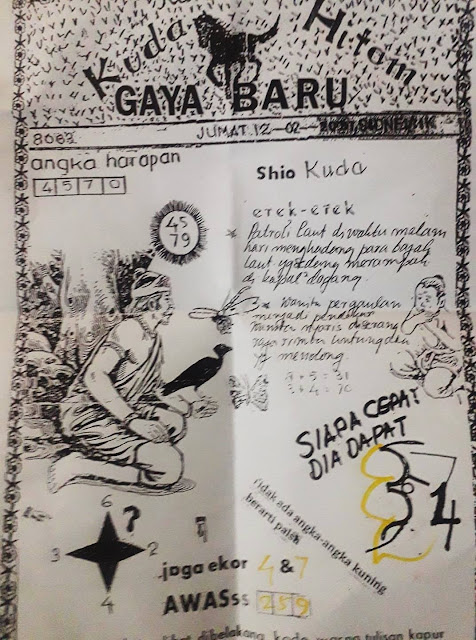 Kuda Hitam
GAYA BARU
8063
JUMAT 12-02-
angka harapan
4 5 7 0
Shio Kuda
45
79
erek-erek
* Patroli laut di waktu malam
hari menghadang para bajak
laut yg sedang merampah
di kapal dagang.
3 * Wanita pergaulan
menjadi
wanita nyaris diserang
raja rimba untung dan
yg menolong.
3 + 4 = 70
SIAPA CEPAT
DIA DAPAT
6
?
3 2
4
tidak ada angka-angka kuning
berarti palsu
4
jaga ekor 4 & 7
AWASss 259
dibelakang kode warna tulisan kapur